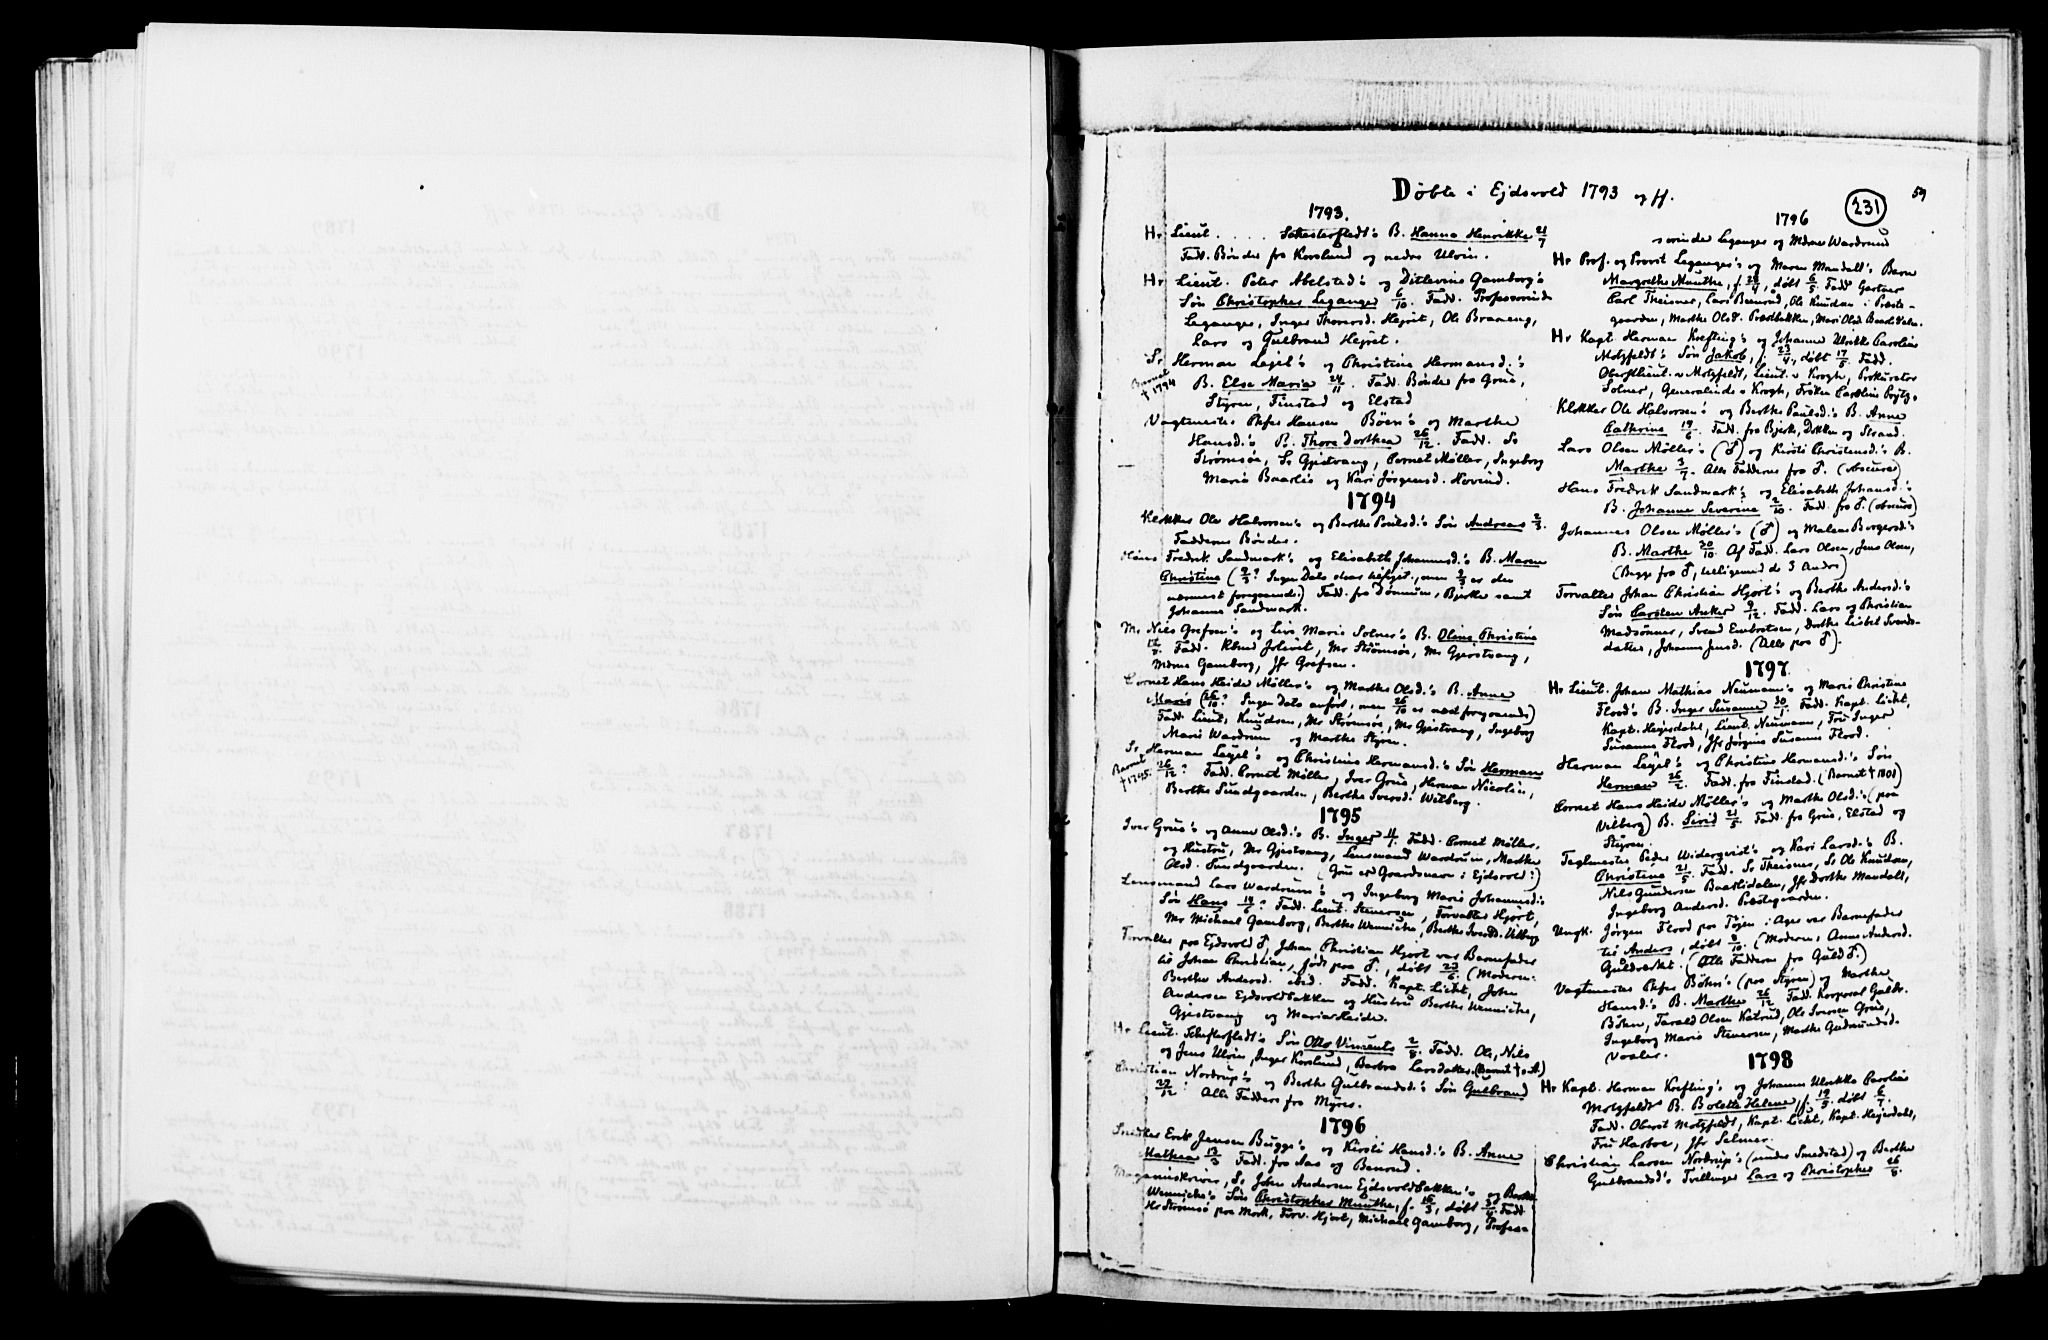 Døbte i Ejdsvold 1793 og ff.
59
231
1793.
Hr Lieut. . . . . . Schesterfledt's B. Hanna Henrikke 21/7
Fadd. Bønder fra Korslund og nedre Ulvin.
Hr Lieut. Peter Abelsted's og Ditlevine Gamborg's
Søn Christopher Leganger 6/10. Fadd. Professorinde
Leganger, Inger Thorersd. Hejret, Ole Braneng,
Lars og Gulbrand Hejret.
Sr Herman Lejel's og Christine Hermansd.'s
Barnet † 1794
B. Else Maria 24/11. Fadd. Bønder fra Grue,
Styren, Finstad og Elstad
Vagtmester Peder Hansen Böen's og Marthe
Hansd.'s B. Thore Dorthea 26/12. Fadd. Sr
Strømsöe, Sr Gjestvang, Cornet Møller, Ingeborg
Marie Baarlie og Kari Jörgensd. Hovind.
1794
Klokker Ole Halvorsen's og Berthe Poulsd.'s Søn Andreas 2/3.
Fadderne Bönder.
Hans Fredrik Sandmark's og Elisabeth Johannesd.'s B. Maren
Christine (9/3? Ingen Dato er tilføjet, men 9/3 er den
nærmest foregaaende.) Fadd. fra Dønnum, Bjerke samt
Johanne Sandmark.
Mr Nils Grefsen's og Live Marie Solner's B. Oline Christine
Fadd. Knud Jolivet, Mr Strømsöe, Mr Gjestvang,
Mdme Gamborg, Jfr Grefsen.
Cornet Hans Heide Møller's og Marthe Olsd.'s B. Anne
Marie (26/10? Ingen Dato anført, men 26/10 er næst foregaaende)
Fadd. Lieut. Knudsen, Mr Strømsöe, Mr Gjestvang, Ingeborg
Marie Wardrum og Marthe Styren.
Sr Herman Lejel's og Christine Hermansd.'s Søn Herman
Barnet † 1795.
26/12? Fadd. Cornet Møller, Iver Grue, Herman Nicolin,
Berthe Sundgaarden, Berthe Iversd. Wilberg.
1795
Iver Grue's og Anne Olsd.'s B. Inger 11/1. Fadd. Cornet Møller,
og Hustru, Mr Gjestvang, Lensmand Wardrum, Marthe
Olsd. Sundgaarden. (Grue er Gaardsnavn i Ejdsvold!)
Lensmand Lars Wardrum's og Ingeborg Marie Johannesd.'s
Søn Hans 14/6? Fadd. Lieut. Stenersen, Forvalter Hjort,
Mr Michael Gamborg, Berthe Wenniche, Berthe Iversd. Vilberg
Forvalter paa Ejdsvold ♂, Johan Christian Hjort var Barnefader
til Johan Christian, født paa ♂, døbt 23/6. (Moderen:
Berthe Andersd. ibid. Fadd. Kapt. Licht, John
Andersen Ejdsvoldbakken og Hustru Berthe Wenniche,
Gjestvang og Maria Heide.
Hr Lieut. Schesterfledt's Søn Otto Vincents 2/8. Fadd. Ole, Nils
og Jens Ulvin, Inger Korslund, Barbro Larsdatter. (Barnet † s.A.)
Christian Nordrup's og Berthe Gulbrandsd.'s Søn Gulbrand
27/12? Alle Faddere fra Myrer.
1796
Snedker Erik Jensen Bugge's og Kirsti Hansd.'s B. Anne
Mathea 13/3 Fadd. fra Aas og Benrud.
Magasinskriver, Sr John Andersen Ejdsvoldbakken's og Berthe
Wenniche's Søn Christopher Munthe, f. 16/3, døbt 3/4 Fadd
Hr Strømsö paa Mork, Forv. Hjort, Michael Gamborg, Profes=
1796
sorinde Leganger og Mdme Wardrum
Hr Prof. og Provst Leganger's og Maren Mandall's Barn
Margrethe Munthe, f. 24/4, døbt 6/5 Fadd Gartner
Carl Theisner, Lars Benrud, Ole Knudsen i Præste-
gaarden, Marthe Olsd. Præstbakken, Mari Olsd Baarlidalen.
Hr Kapt Herman Krefting's og Johanne Ulrikke Caroline
Motzfeldt's Søn Jakob, f. 23/4, døbt 17/5 Fadd.
Oberstlieut. v Motzfeldt, Lieut. v Krogh, Prokurator
Solner, Generalinde v Krogh, Frøken Caroline Prytz.
Klokker Ole Halvorsen's og Berthe Paulsd.'s B. Anne
Cathrine 19/6. Fadd. fra Bjerke, Dokken og Strand.
Lars Olsen Møller's (♂) og Kirsti Christensd.'s B.
Marthe 3/7. Alle Fadderne fra ♂. (obscure)
Hans Fredrik Sandmark's og Elisabeth Johansd.'s
B. Johanne Severine 2/10. Fadd. fra ♂. (obscure)
Johannes Olsen Møller's (♂) og Malene Borgersd's
B. Marthe 30/10. Af Fadd. Lars Olsen, Jens Olsen,
(Begge fra ♂, ligesom de 3 Andre)
Forvalter Johan Christian Hjort's og Berthe Andersd.'s
Søn Carsten Anker 9/12. Fadd. Lars og Christian
Madsønner, Svend Embretsen, Dorthe Lisbet Svends-
datter, Johanne Jensd. (Alle paa ♂).
1797.
Hr Lieut. Johan Mathias Neumann's og Marie Christine
Flood's B. Inger Susanne 30/1. Fadd. Kapt. Licht,
Kapt. Hejerdahl, Lieut. Neumann, Fru Inger
Susanne Flood, Jfr Jørgine Susanne Flood.
Herman Lejel's og Christine Hermansd.'s Søn
Herman 26/2. Fadd. fra Finstad. (Barnet † 1801)
Cornet Hans Heide Møller's og Marthe Olsd.'s (paa
Vilberg) B. Sirid 21/5 Fadd. fra Grue, Elstad og
Styren.
Teglmester Peder Widerqvist's og Kari Larsd.'s B.
Christine 21/5. Fadd. Sr Theisner, Sr Ole Knudsen,
Nils Gundersen Baarlidalen, Jfr Dorthe Mandall,
Ingeborg Andersd. Præstegaarden.
Ungk. Jørgen Flood paa Töjen i Ager var Barnefader
til Anders, døbt 8/10. (Moderen, Anne Andersd.
Guldverket. (Alle Faddere fra Guld ♂.)
Vagtmester Peder Böhn's (paa Styren) og Marthe
Hansd.'s B. Marthe 26/12 Fadd. Korporal Gulbr.
Böhn, Tarald Olsen Katrud, Ole Iversen Grue,
Ingeborg Marie Stenersen, Marthe Gudmundsd.
Vaaler.
1798
Hr Kapt. Herman Krefting's og Johanne Ulrikke Caroline
Motzfeldt B. Bolette Helene, f. 19/5. døbt 6/7.
Fadd. Oberst Motzfeldt, Kapt. Licht, Kapt. Hejerdahl,
Fru Harboe, Jfr Selmer.
Christian Larsen Nordrup's (under Smedstad) og Berthe
Gulbrandsd's Tvillinger Lars og Christopher 26/8.